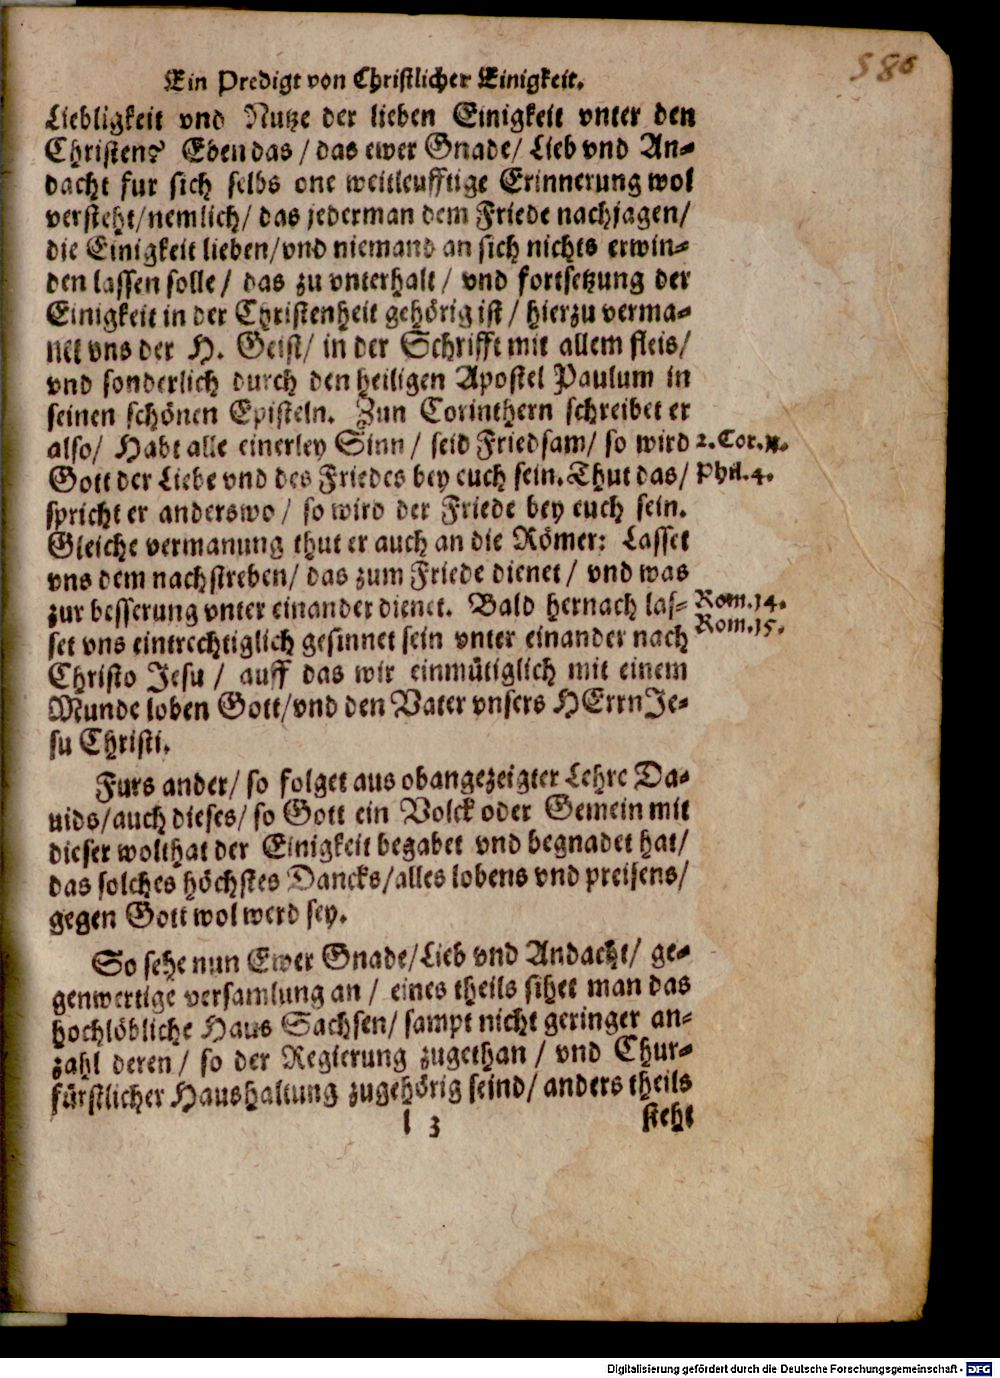 Ein Predigt von Christlicher Einigkeit.
586
Liebligkeit vnd Nutze der lieben Einigkeit vnter den
Christen? Eben das / das ewer Gnade/ Lieb vnd An-
dacht fur sich selbs one weitleufftige Erinnerung wol
versteht/nemlich/ das jederman dem Friede nachjagen/
die Einigkeit lieben/vnd niemand an sich nichts erwin-
den lassen solle / das zu vnterhalt / vnd fortsetzung der
Einigkeit in der Christenheit gehörig ist / hierzu verma-
net vns der H. Geist/ in der Schrifft mit allem fleis/
vnd sonderlich durch den heiligen Apostel Paulum in
seinen schönen Episteln. Zun Corinthern schreibet er
also/ Habt alle einerley Sinn / seid Friedsam/ so wird
2. Cor.
Gott der Liebe vnd des Friedes bey euch sein. Thut das/
Phil. 4.
spricht er anderswo / so wird der Friede bey euch sein.
Gleiche vermanung thut er auch an die Römer: Lasset
vns dem nachstreben/ das zum Friede dienet / vnd was
zur besserung vnter einander dienet. Bald hernach las-
Rom. 14.
set vns eintrechtiglich gesinnet sein vnter einander nach
Rom. 15.
Christo Jesu / auff das wir einmütiglich mit einem
Munde loben Gott/vnd den Vater vnsers HErrn Je-
su Christi.
Furs ander/ so folget aus obangezeigter Lehre Da-
uids/auch dieses/ so Gott ein Volck oder Gemein mit
dieser wolthat der Einigkeit begabet vnd begnadet hat/
das solches höchstes Dancks/alles lobens vnd preisens/
gegen Gott wol werd sey.
So sehe nun Ewer Gnade/Lieb vnd Andacht/ ge-
genwertige versamlung an / eines theils sihet man das
hochlöbliche Haus Sachsen/ sampt nicht geringer an-
zahl deren / so der Regierung zugethan / vnd Chur-
fürstlicher Haushaltung zugehörig seind/ anders theils
l 3
steht
Digitalisierung gefördert durch die Deutsche Forschungsgemeinschaft - DFG